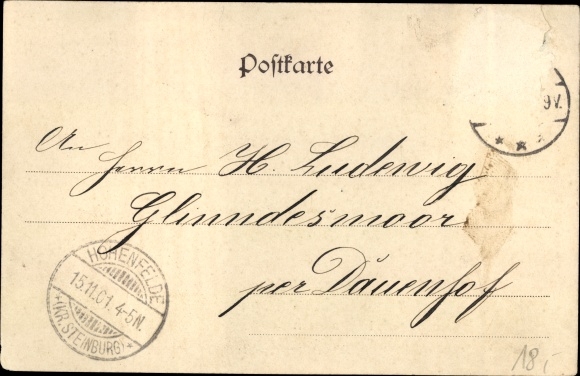 Postkarte
9V.
An Herrn H. Ludewig
Glinndesmoor
per Dauenhof
HOHENFELDE
15.11.01. 4-5N.
*(KR. STEINBURG)*
18,-